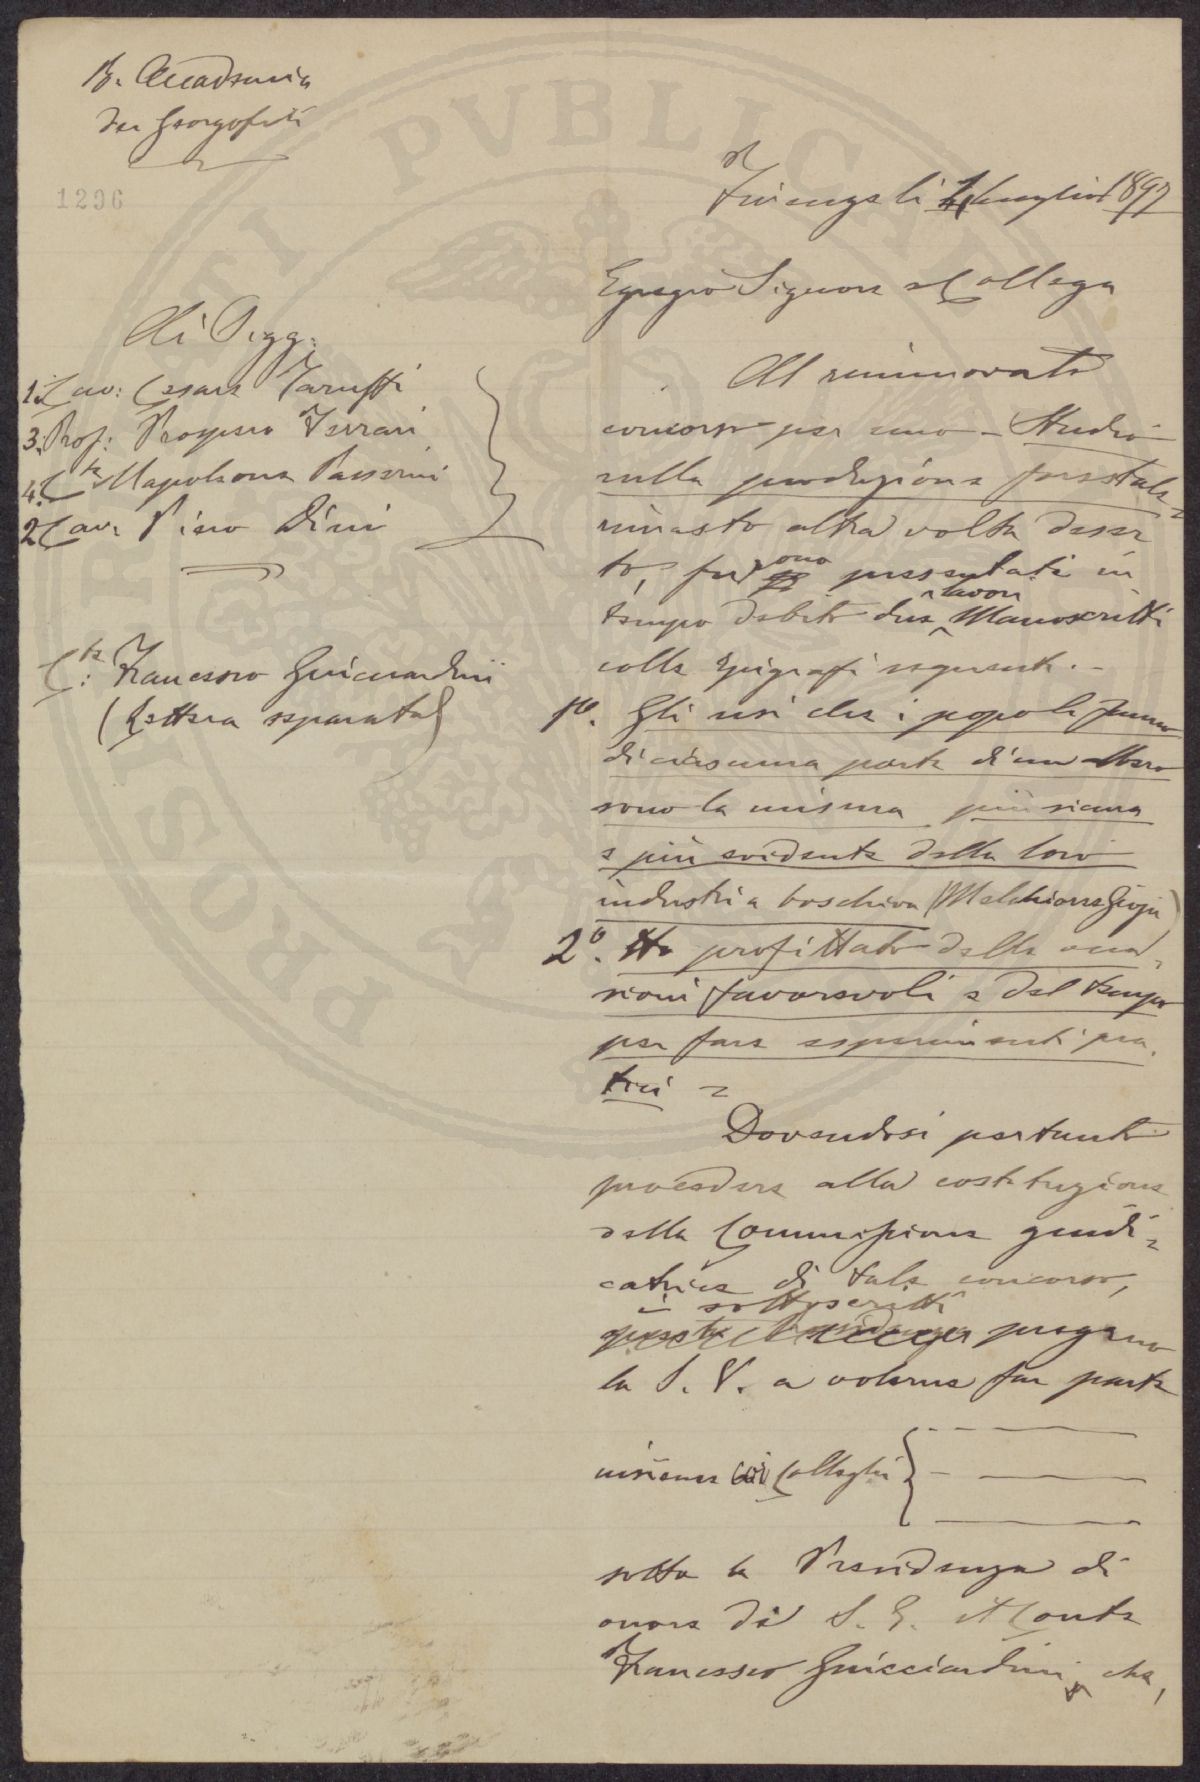 R. Accademia
dei Georgofili
1296
Firenze li 1 Luglio 1897
Egregio Signore e Collega
Ai Sigg:
1. Cav: Cesare Taruffi
3. Prof: Prospero Ferrari
4. C.te Napoleone Passerini
2. Cav. Piero Dini
C.te: Francesco Guicciardini
(Lettera separata)
Al rinnovato
concorso per uno - Studio
sulla produzione forestale =
rimasto altra volta deser
to, furono presentati in
tempo debito due lavori Manoscritti
colle epigrafi seguenti. -
1o. Gli usi che i popoli fanno
di ciascuna parte di un albero
sono la misura più sicura
e più evidente della loro
industria boschiva (Melchiorre Gioja)
2o. Ho profittato delle occa=
sioni favorevoli e del tempo
per fare esperimenti pra=
tici =
Dovendosi pertanto
procedere alla costituzione
della Commissione giudi=
catrice di tale concorso,
i sottoscritti
questa Presidenza pregano
la S. V. a volerne far parte
insieme ai Colleghi
sotto la Presidenza di
onore di S. E. il Conte
Francesco Guicciardini, che,
PROSPERITATI PVBLICAE